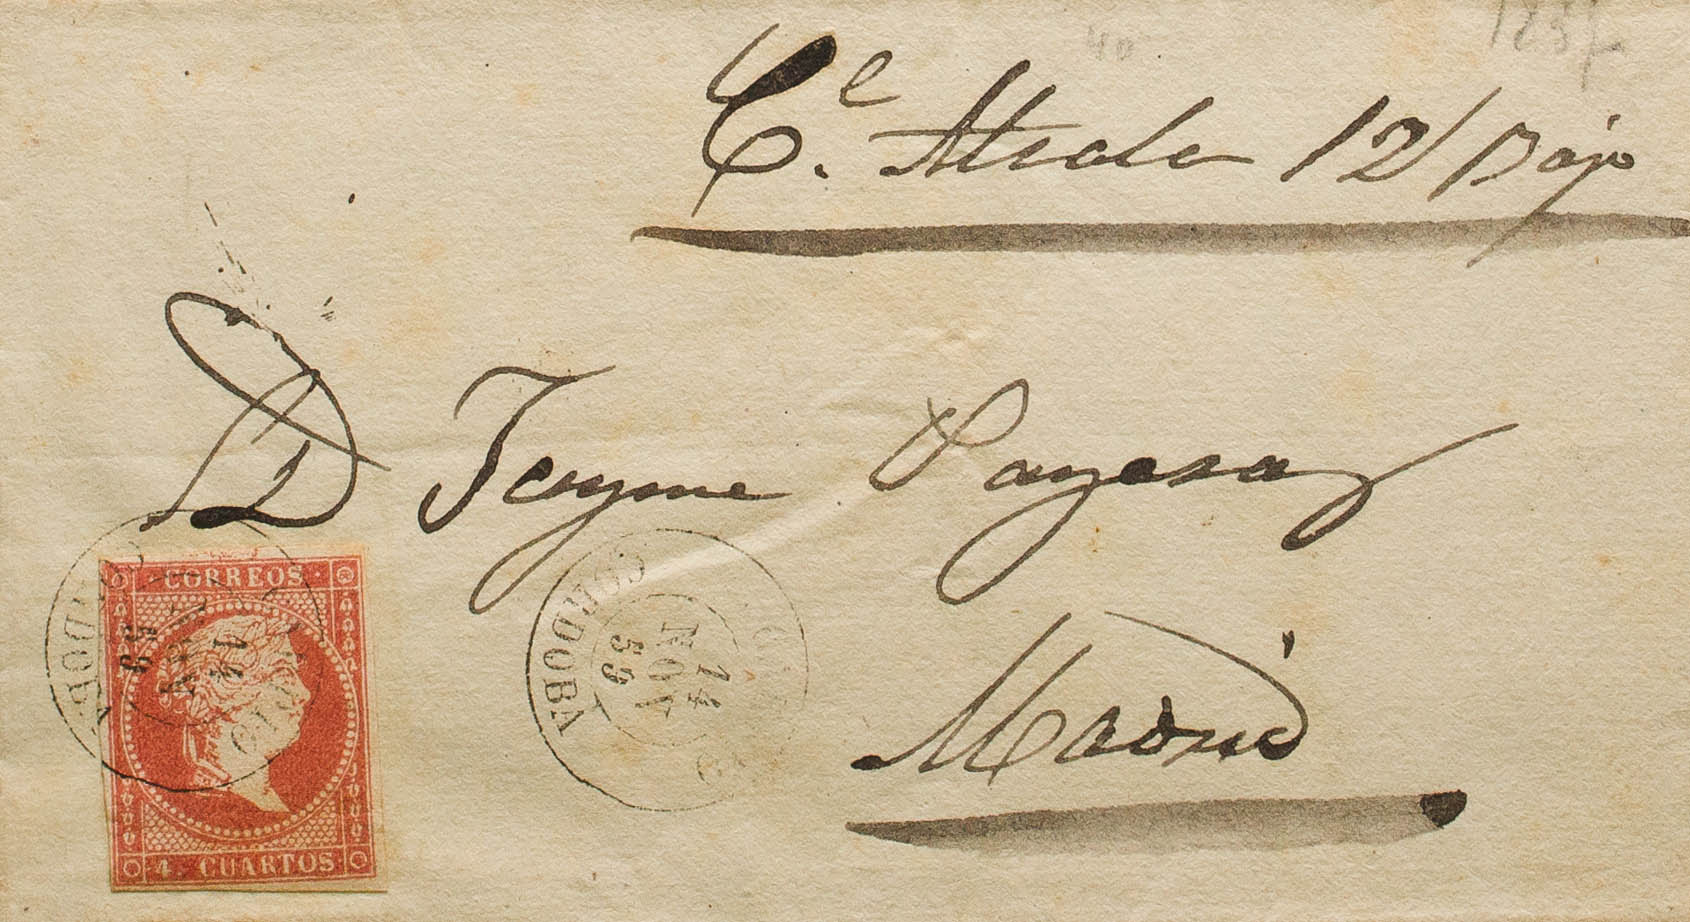 40 1857
C.e Atocha 12/ Bajo
D Jayme Payeras
Madrid
CORREOS
4 CUARTOS
CORDOBA
14 NOV 59
CORDOBA
14 NOV 59